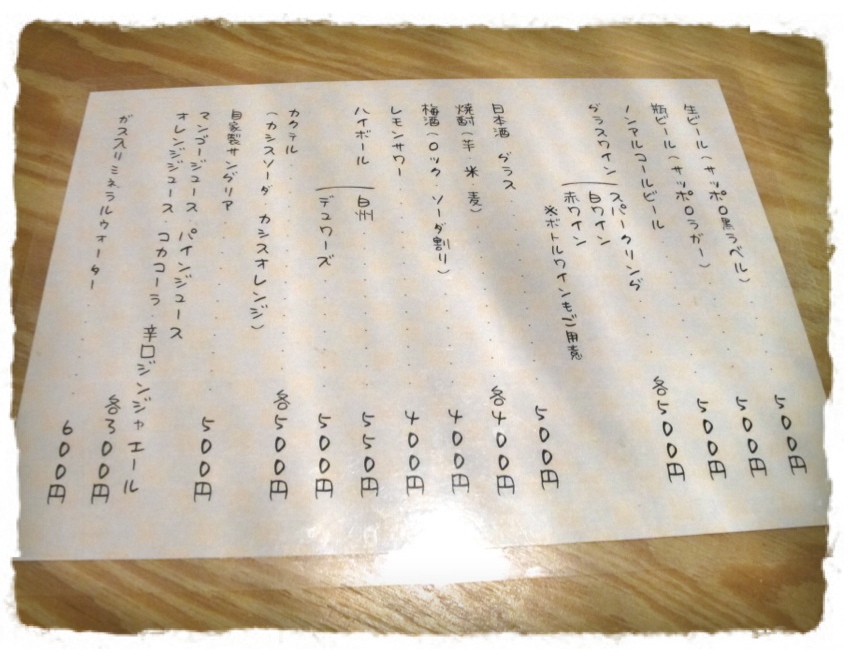 生ビール(サッポロ黒ラベル) 500円
瓶ビール(サッポロラガー) 500円
ノンアルコールビール 500円
グラスワイン スパークリング 各500円
白ワイン
赤ワイン
※ボトルワインもご用意
日本酒 グラス 500円
焼酎(芋・米・麦) 各400円
梅酒(ロック・ソーダ割り) 400円
レモンサワー 400円
ハイボール 白州 550円
デュワーズ 500円
カクテル
(カシスソーダ・カシスオレンジ) 各500円
自家製サングリア 500円
マンゴージュース パインジュース
オレンジジュース コカコーラ 辛口ジンジャエール 各300円
ガス入りミネラルウォーター 600円